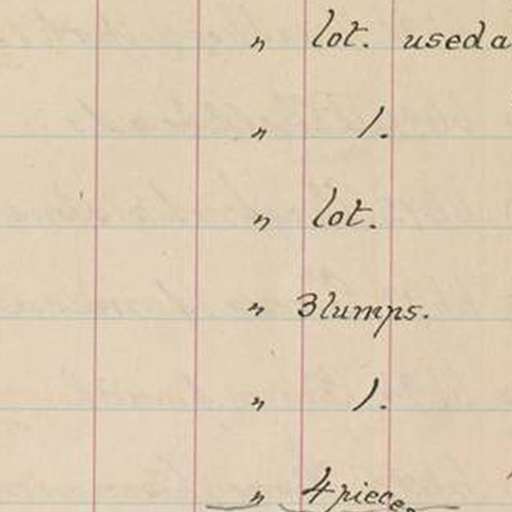 " lot. used a
" 1.
" lot.
" 3 lumps.
" 1.
" 4 pieces